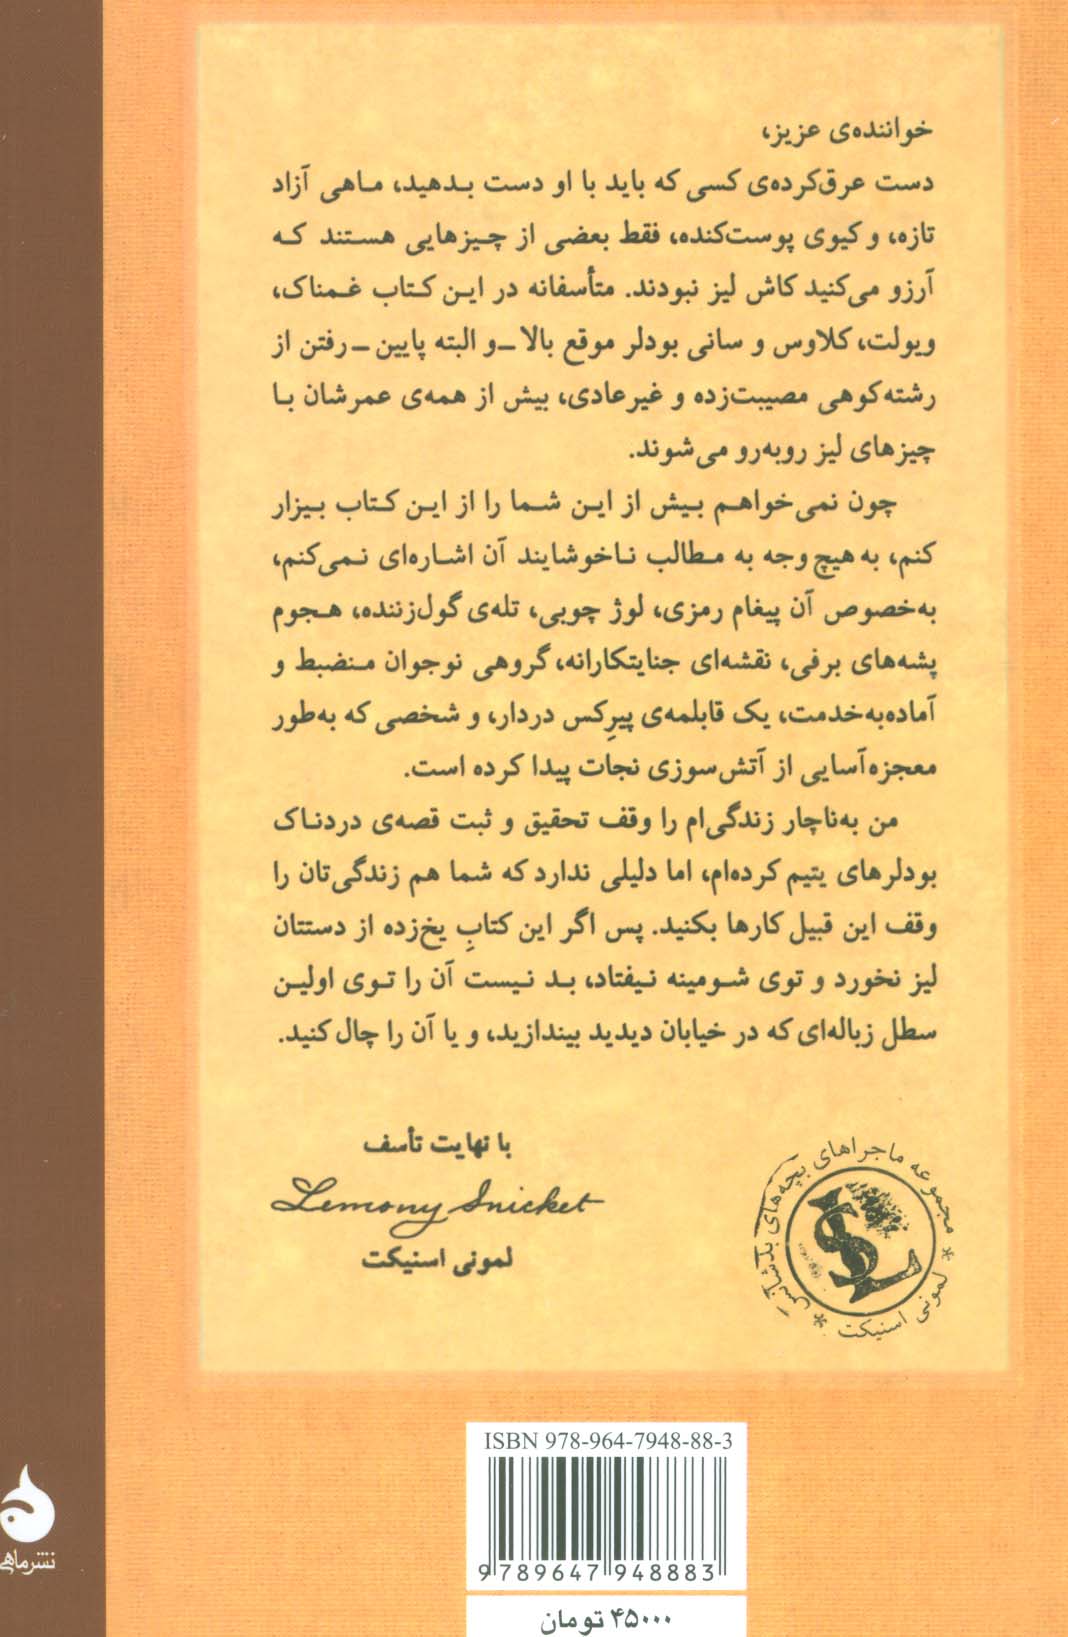 خواننده‌ی عزیز،
دست عرق‌کرده‌ی کسی که باید با او دست بدهید، ماهی آزاد
تازه، و کیوی پوست‌کنده، فقط بعضی از چیزهایی هستند که
آرزو می‌کنید کاش لیز نبودند. متأسفانه در این کتاب غمناک،
ویولت، کلاوس و سانی بودلر موقع بالا ـ و البته پایین ـ رفتن از
رشته‌کوهی مصیبت‌زده و غیرعادی، بیش از همه‌ی عمرشان با
چیزهای لیز روبه‌رو می‌شوند.
چون نمی‌خواهم بیش از این شما را از این کتاب بیزار
کنم، به هیچ وجه به مطالب ناخوشایند آن اشاره‌ای نمی‌کنم،
به‌خصوص آن پیغام رمزی، لوژ چوبی، تله‌ی گول‌زننده، هجوم
پشه‌های برفی، نقشه‌ای جنایتکارانه، گروهی نوجوان منضبط و
آماده‌به‌خدمت، یک قابلمه‌ی پیرِکس دردار، و شخصی که به‌طور
معجزه‌آسایی از آتش‌سوزی نجات پیدا کرده است.
من به‌ناچار زندگی‌ام را وقف تحقیق و ثبت قصه‌ی دردناک
بودلرهای یتیم کرده‌ام، اما دلیلی ندارد که شما هم زندگی‌تان را
وقف این قبیل کارها بکنید. پس اگر این کتابِ یخ‌زده از دستتان
لیز نخورد و توی شومینه نیفتاد، بد نیست آن را توی اولین
سطل زباله‌ای که در خیابان دیدید بیندازید، و یا آن را چال کنید.
با نهایت تأسف
Lemony Snicket
لمونی اسنیکت
مجموعه ماجراهای بچه‌های بدشانس
* لمونی اسنیکت *
LS
ISBN 978-964-7948-88-3
9 789647 948883
۴۵۰۰۰ تومان
نشرماهی